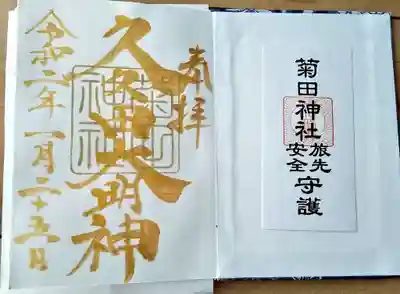 奉拝
久々田大明神
令和二年一月二十五日
菊田神社
菊田神社
旅先
安全
守護